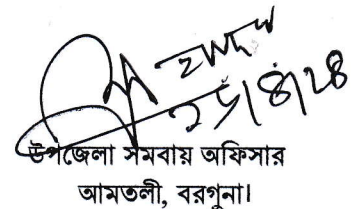 ২৫/৪/২৪
উপজেলা সমবায় অফিসার
আমতলী, বরগুনা।